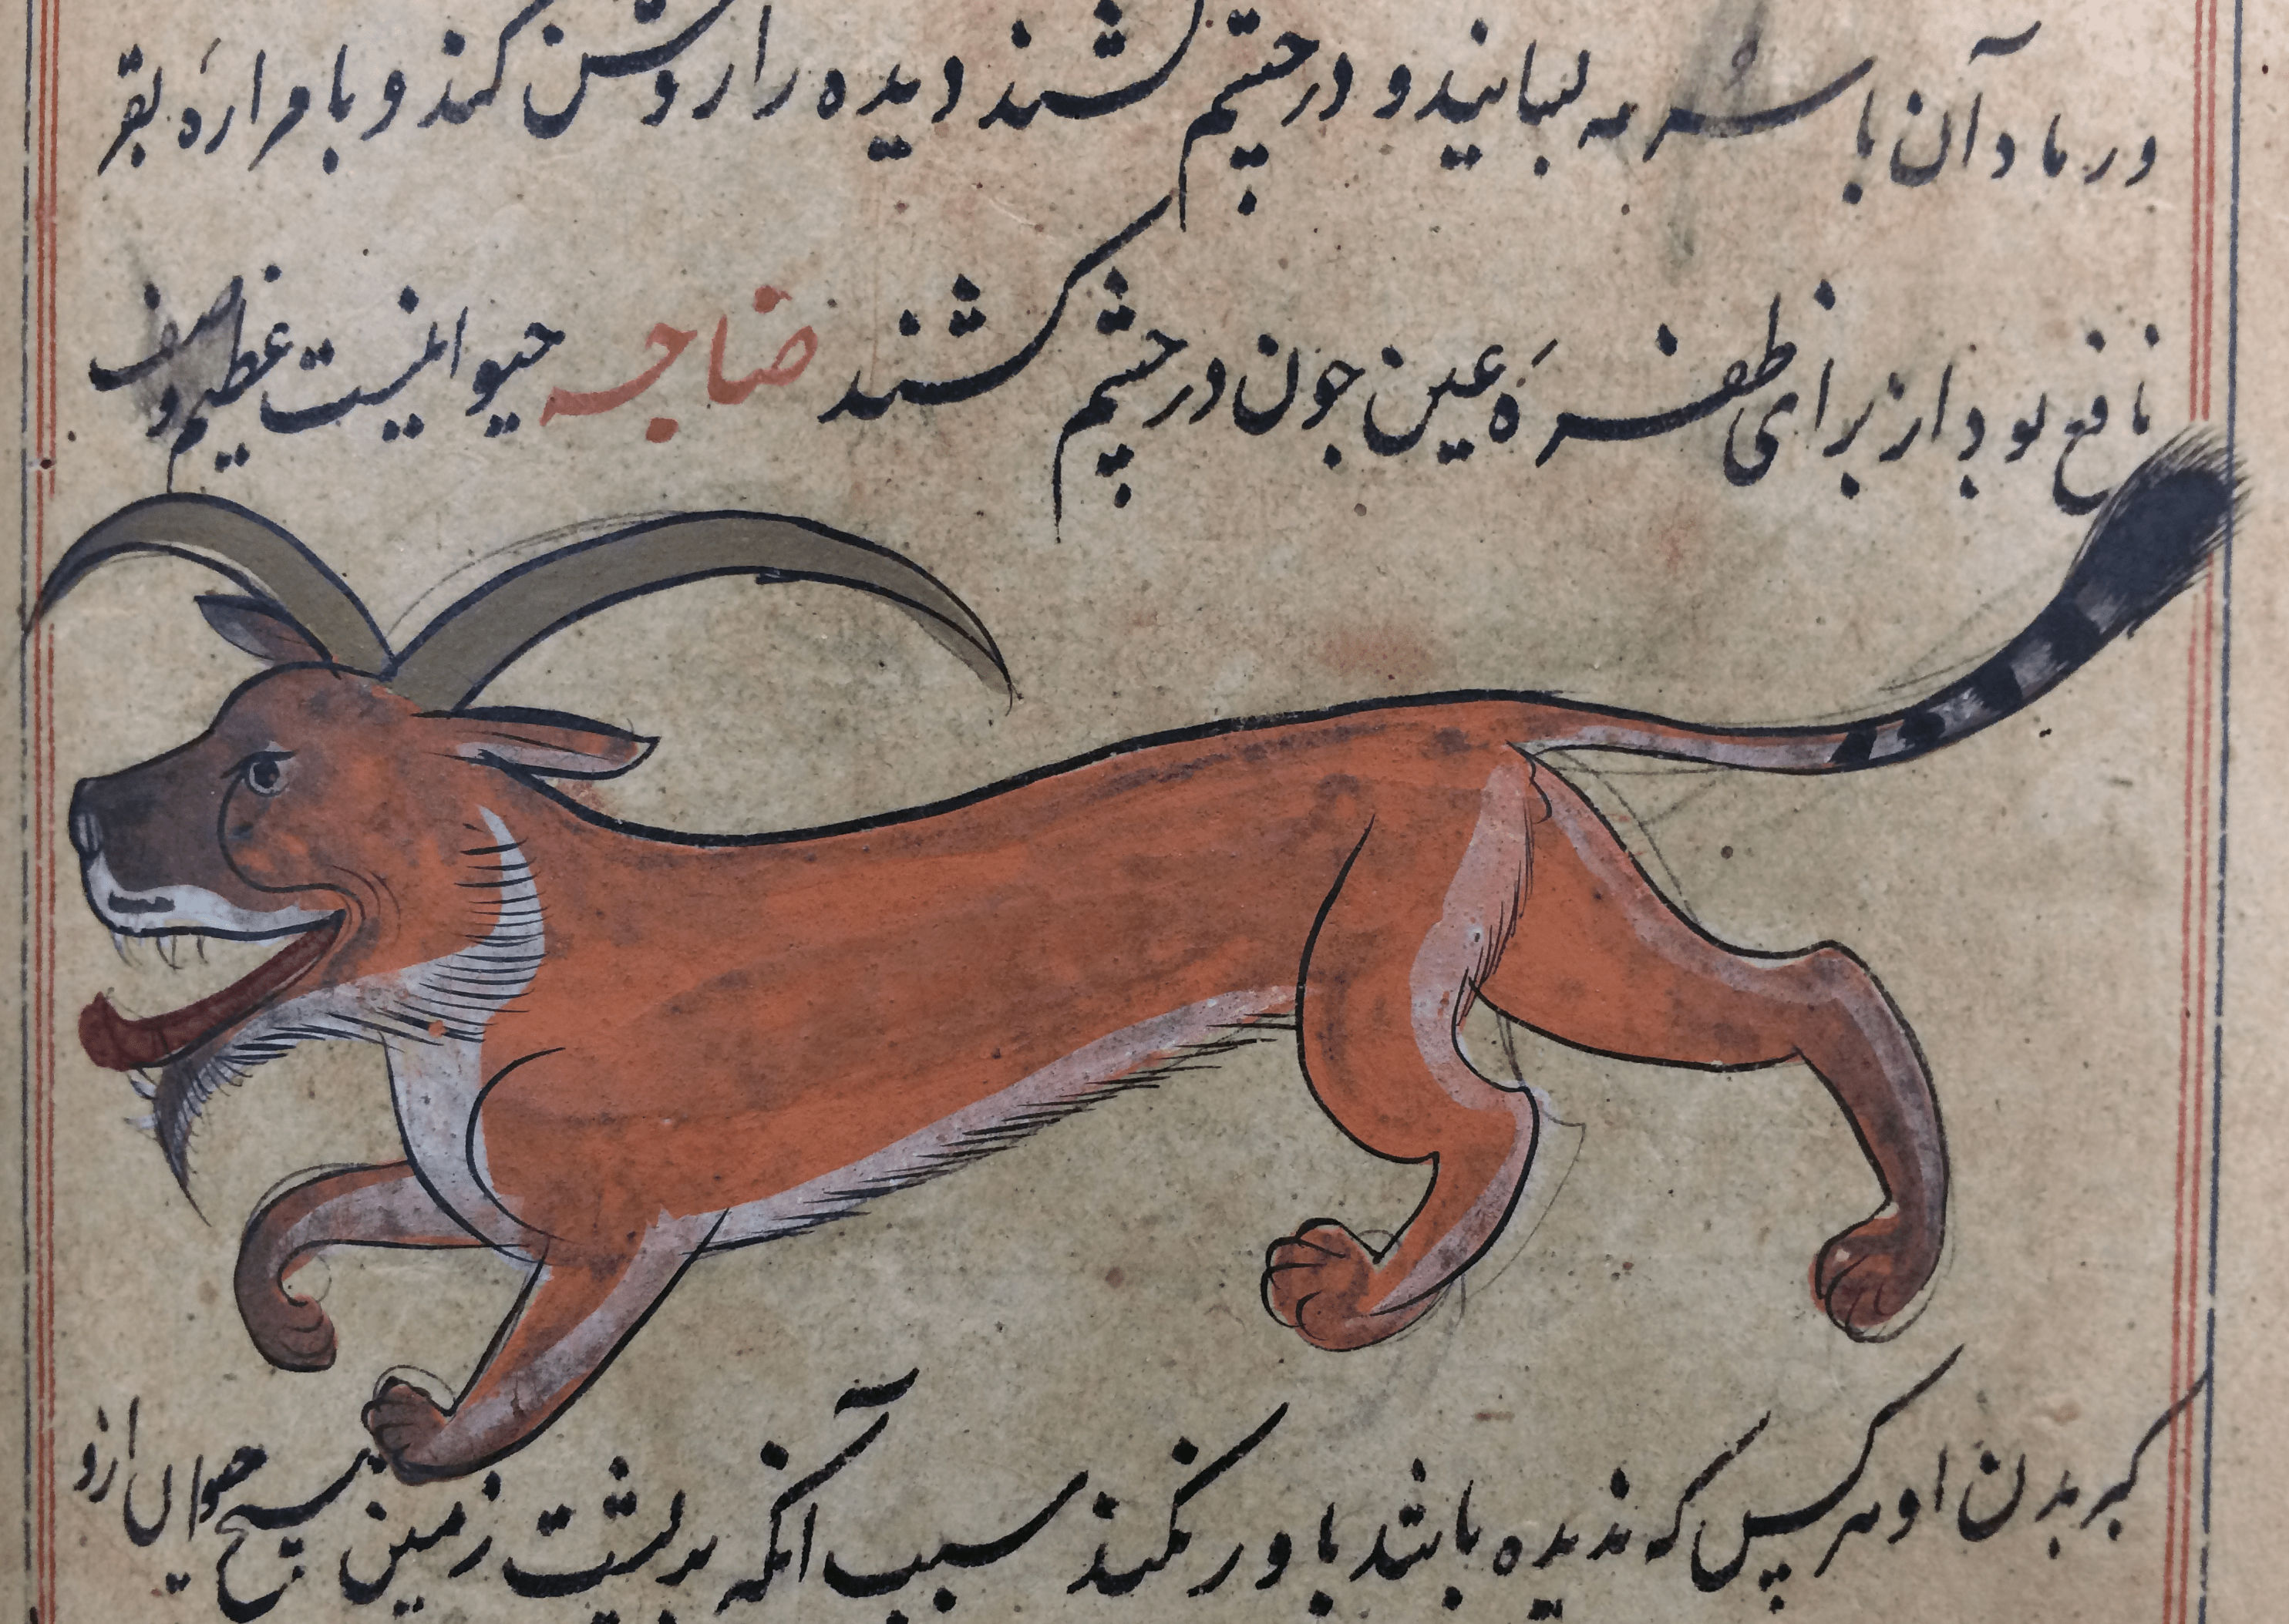 ور ماد آن با سرمه لبسانیند و در چشم کشند دیده را روشن کند و با مراره بقر
نافع بود از برای ظفره عین چون در چشم کشند ضاجه حیوانیست عظیم وصف
کبر بدن او هر کس که ندیده باشد باور نکند سبب آنکه بر پشت زمین هیچ حیوان ازو